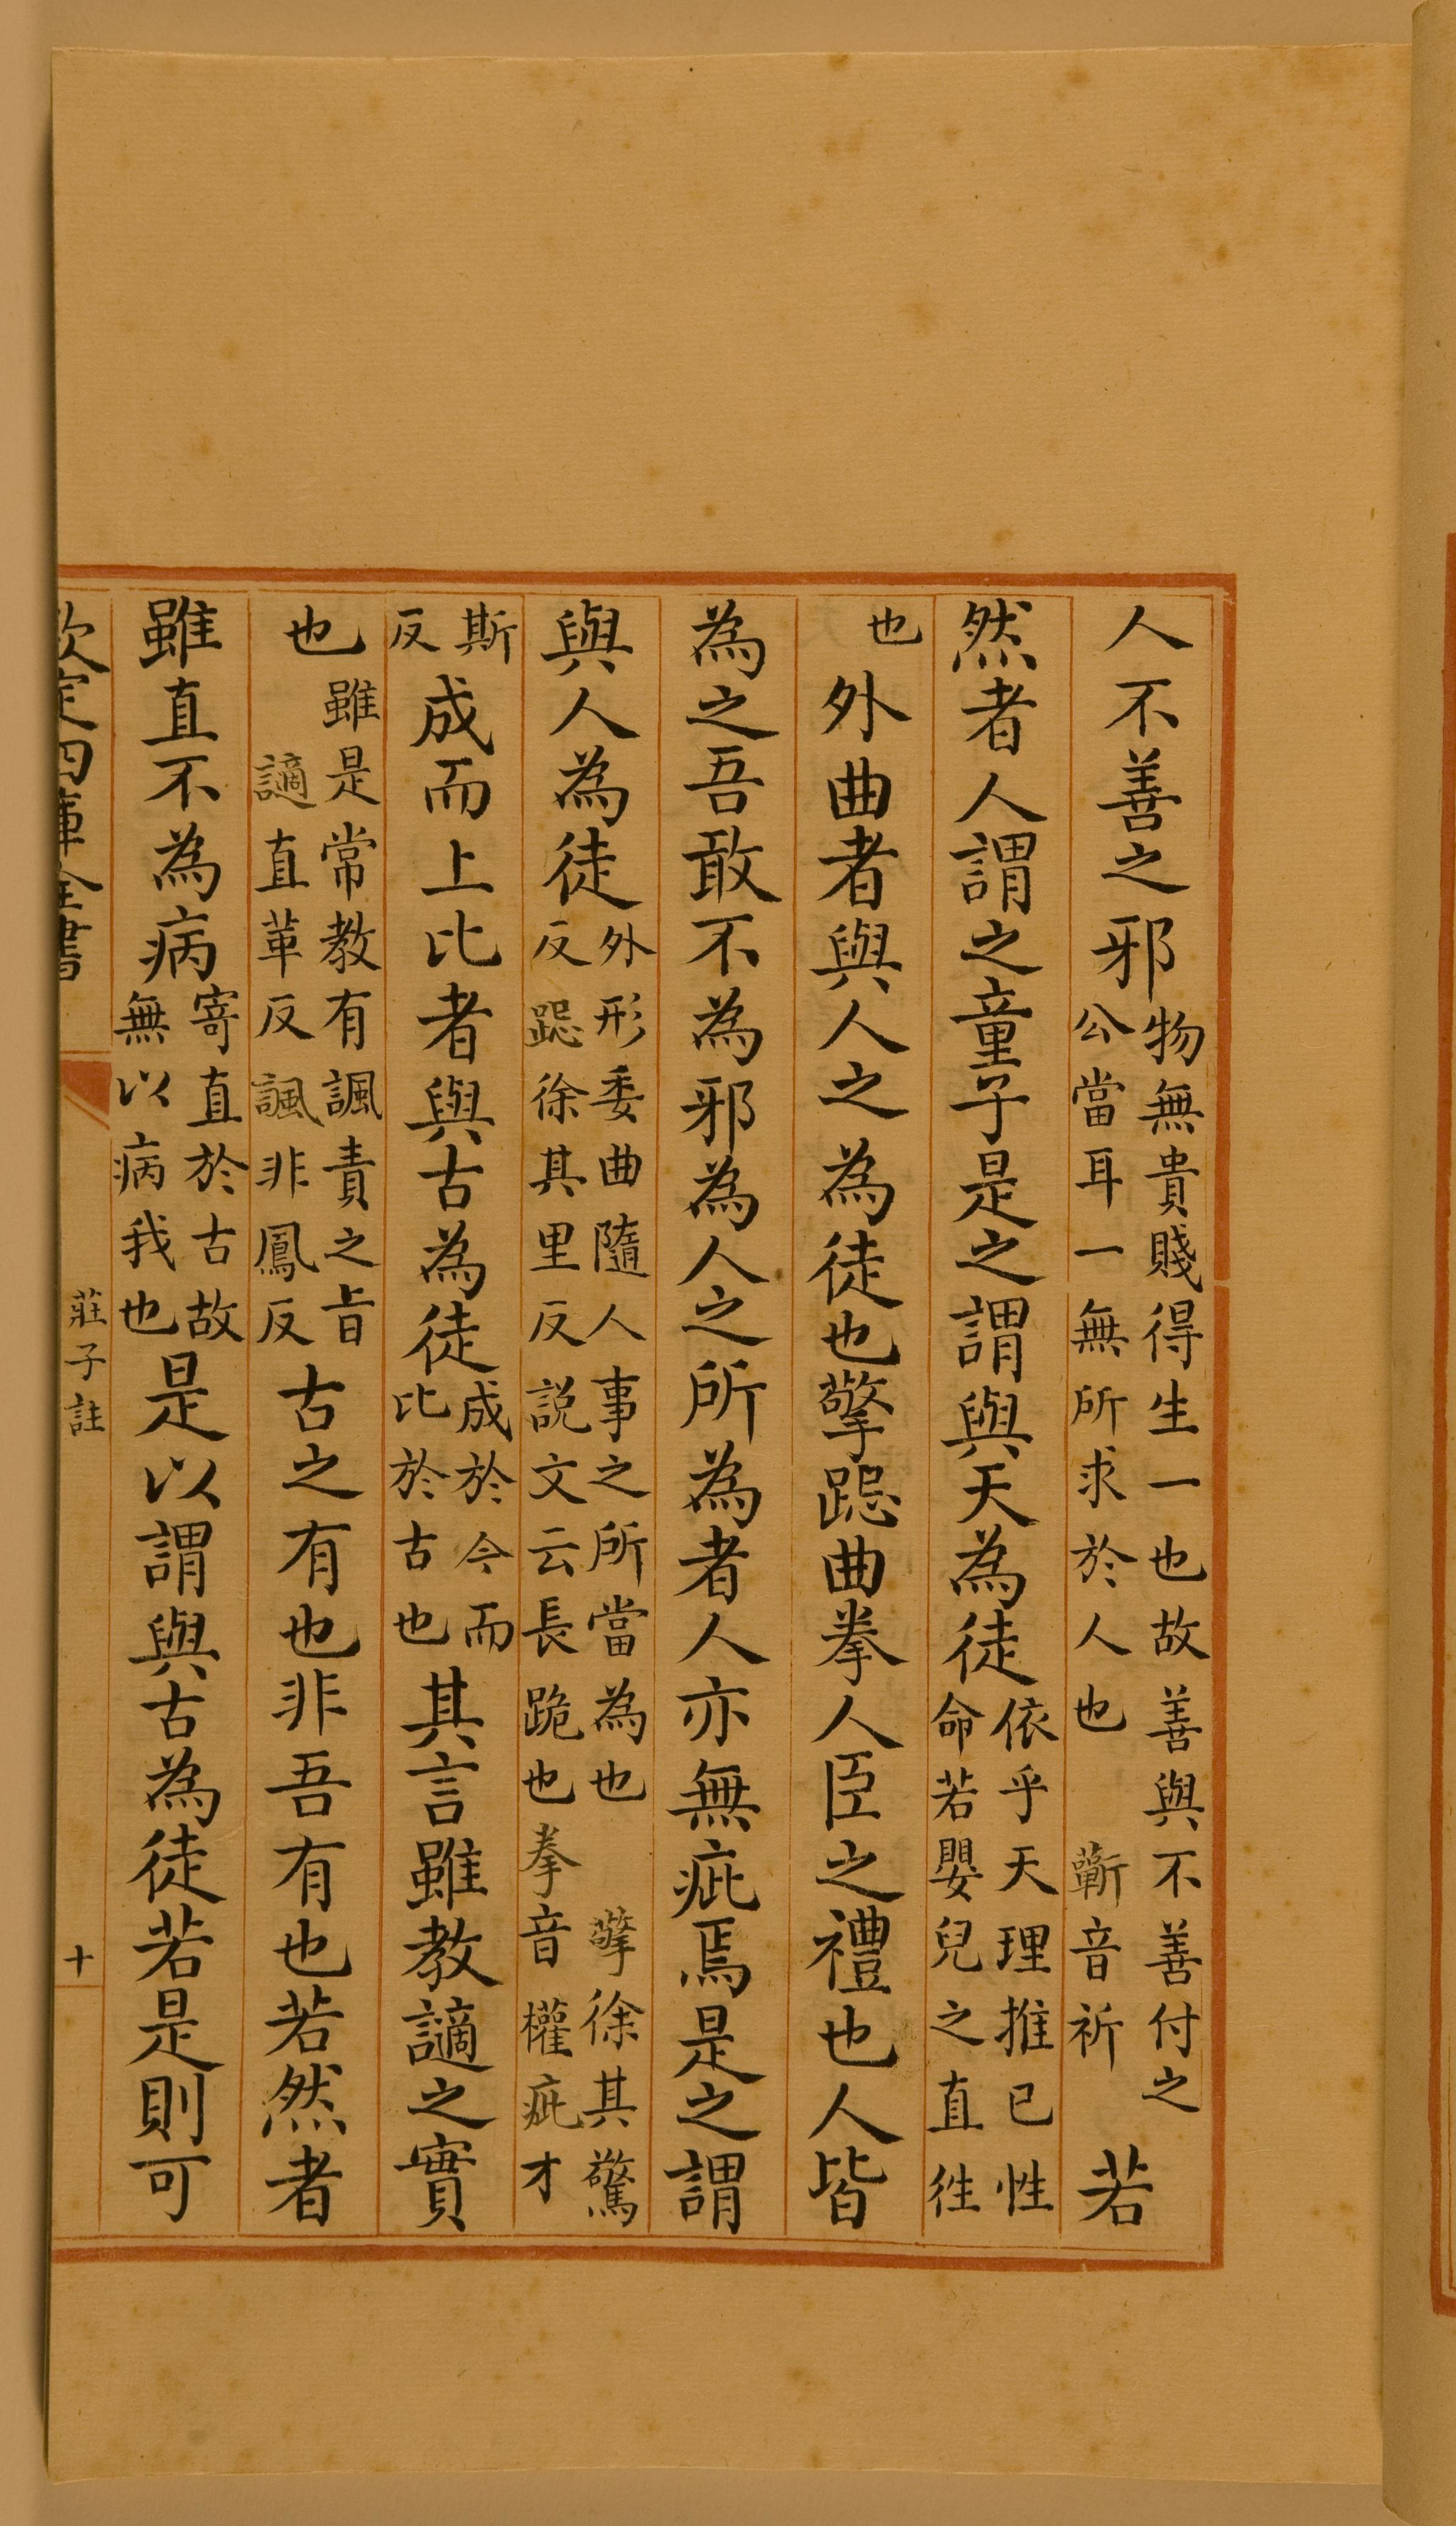 人不善之邪物無貴賤得生一也故善與不善付之公當耳一無所求於人也 蘄音祈若
然者人謂之童子是之謂與天為徒依乎天理推已性命若嬰兒之直徃
也外曲者與人之為徒也擎跽曲拳人臣之禮也人皆
為之吾敢不為邪為人之所為者人亦無疵焉是之謂
與人為徒外形委曲隨人事之所當為也 擎徐其驚反跽徐其里反説文云長跪也拳音權疵才
斯反成而上比者與古為徒成於今而比於古也其言雖教讁之實
也雖是常教有諷責之旨 讁直革反諷非鳳反古之有也非吾有也若然者
雖直不為病寄直於古故無以病我也是以謂與古為徒若是則可
欽定四庫全書
莊子註
十